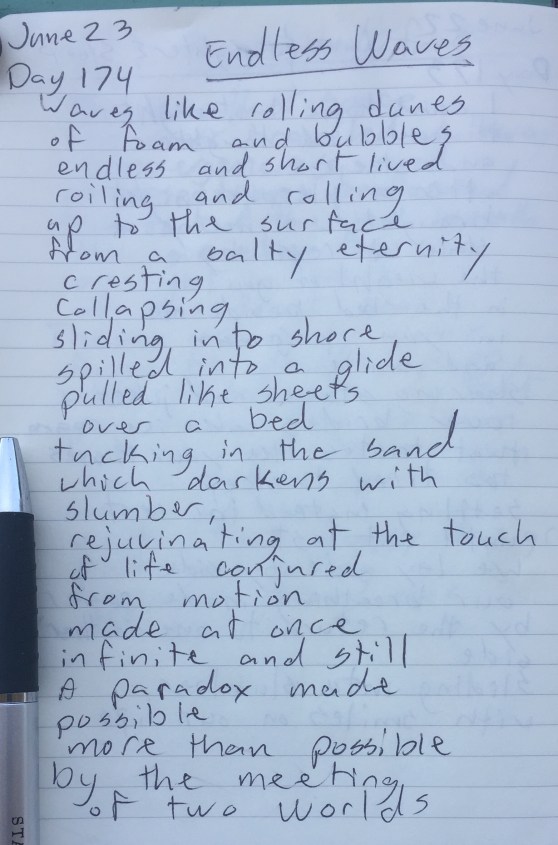 June 23
Endless Waves
Day 174
Waves like rolling dunes
of foam and bubbles
endless and short lived
roiling and rolling
up to the surface
from a salty eternity
cresting
collapsing
sliding into shore
spilled into a glide
pulled like sheets
over a bed
tucking in the sand
which darkens with
slumber,
rejuvinating at the touch
of life conjured
from motion
made at once
infinite and still
A paradox made
possible
more than possible
by the meeting
of two worlds
STA